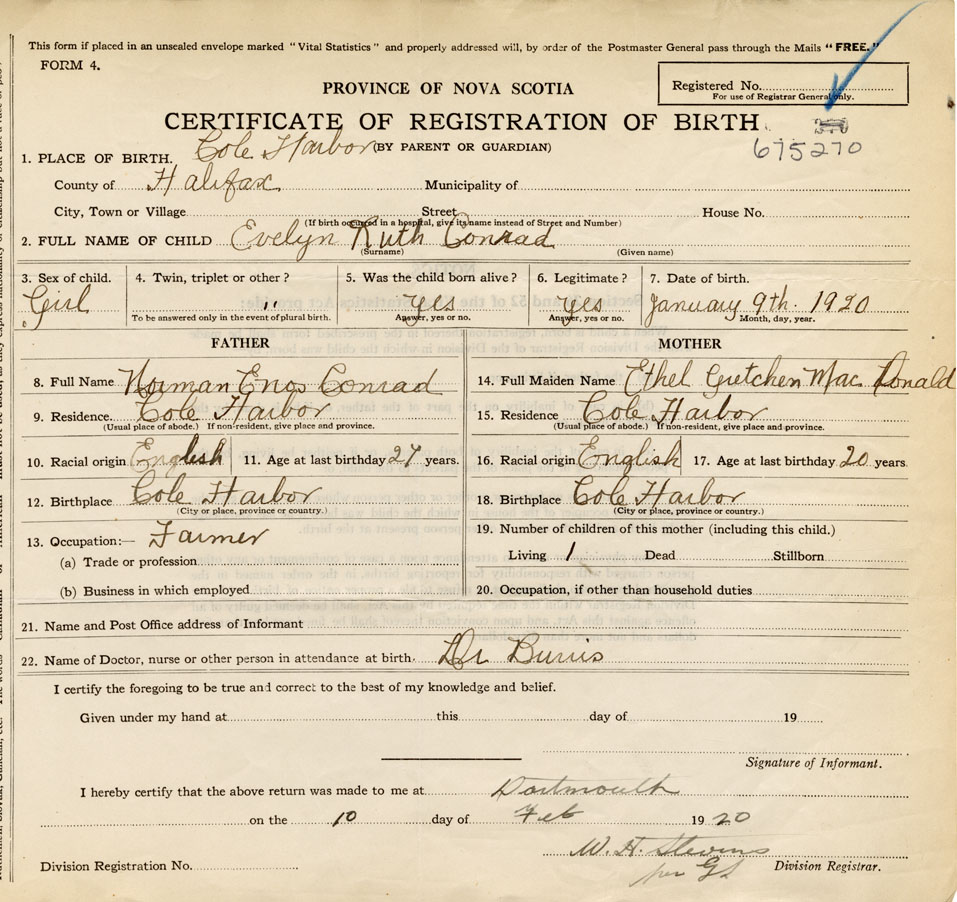 This form if placed in an unsealed envelope marked "Vital Statistics" and properly addressed will, by order of the Postmaster General pass through the Mails "FREE."
FORM 4.
Registered No.
For use of Registrar General only.
PROVINCE OF NOVA SCOTIA
CERTIFICATE OF REGISTRATION OF BIRTH
675270
(BY PARENT OR GUARDIAN)
1. PLACE OF BIRTH. Cole Harbor
County of Halifax Municipality of
City, Town or Village Street House No.
(If birth occurred in a hospital, give its name instead of Street and Number)
2. FULL NAME OF CHILD Evelyn Ruth Conrad
(Surname) (Given name)
3. Sex of child. 4. Twin, triplet or other? 5. Was the child born alive? 6. Legitimate? 7. Date of birth.
Girl " Yes Yes January 9th. 1920
To be answered only in the event of plural birth. Answer, yes or no. Answer, yes or no. Month, day, year.
FATHER MOTHER
8. Full Name Norman Enos Conrad 14. Full Maiden Name Ethel Gretchen Mac Donald
9. Residence. Cole Harbor 15. Residence Cole Harbor
(Usual place of abode.) If non-resident, give place and province. (Usual place of abode.) If non-resident, give place and province.
10. Racial origin English 11. Age at last birthday 27 years. 16. Racial origin English 17. Age at last birthday 20 years.
12. Birthplace Cole Harbor 18. Birthplace Cole Harbor
(City or place, province or country.) (City or place, province or country.)
13. Occupation:— Farmer 19. Number of children of this mother (including this child.)
(a) Trade or profession Living 1 Dead Stillborn
(b) Business in which employed 20. Occupation, if other than household duties
21. Name and Post Office address of Informant
22. Name of Doctor, nurse or other person in attendance at birth. Dr Burris
I certify the foregoing to be true and correct to the best of my knowledge and belief.
Given under my hand at this day of 19
Signature of Informant.
I hereby certify that the above return was made to me at Dartmouth
on the 10 day of Feb 1920
W. H. Stevens
per
Division Registration No. Division Registrar.